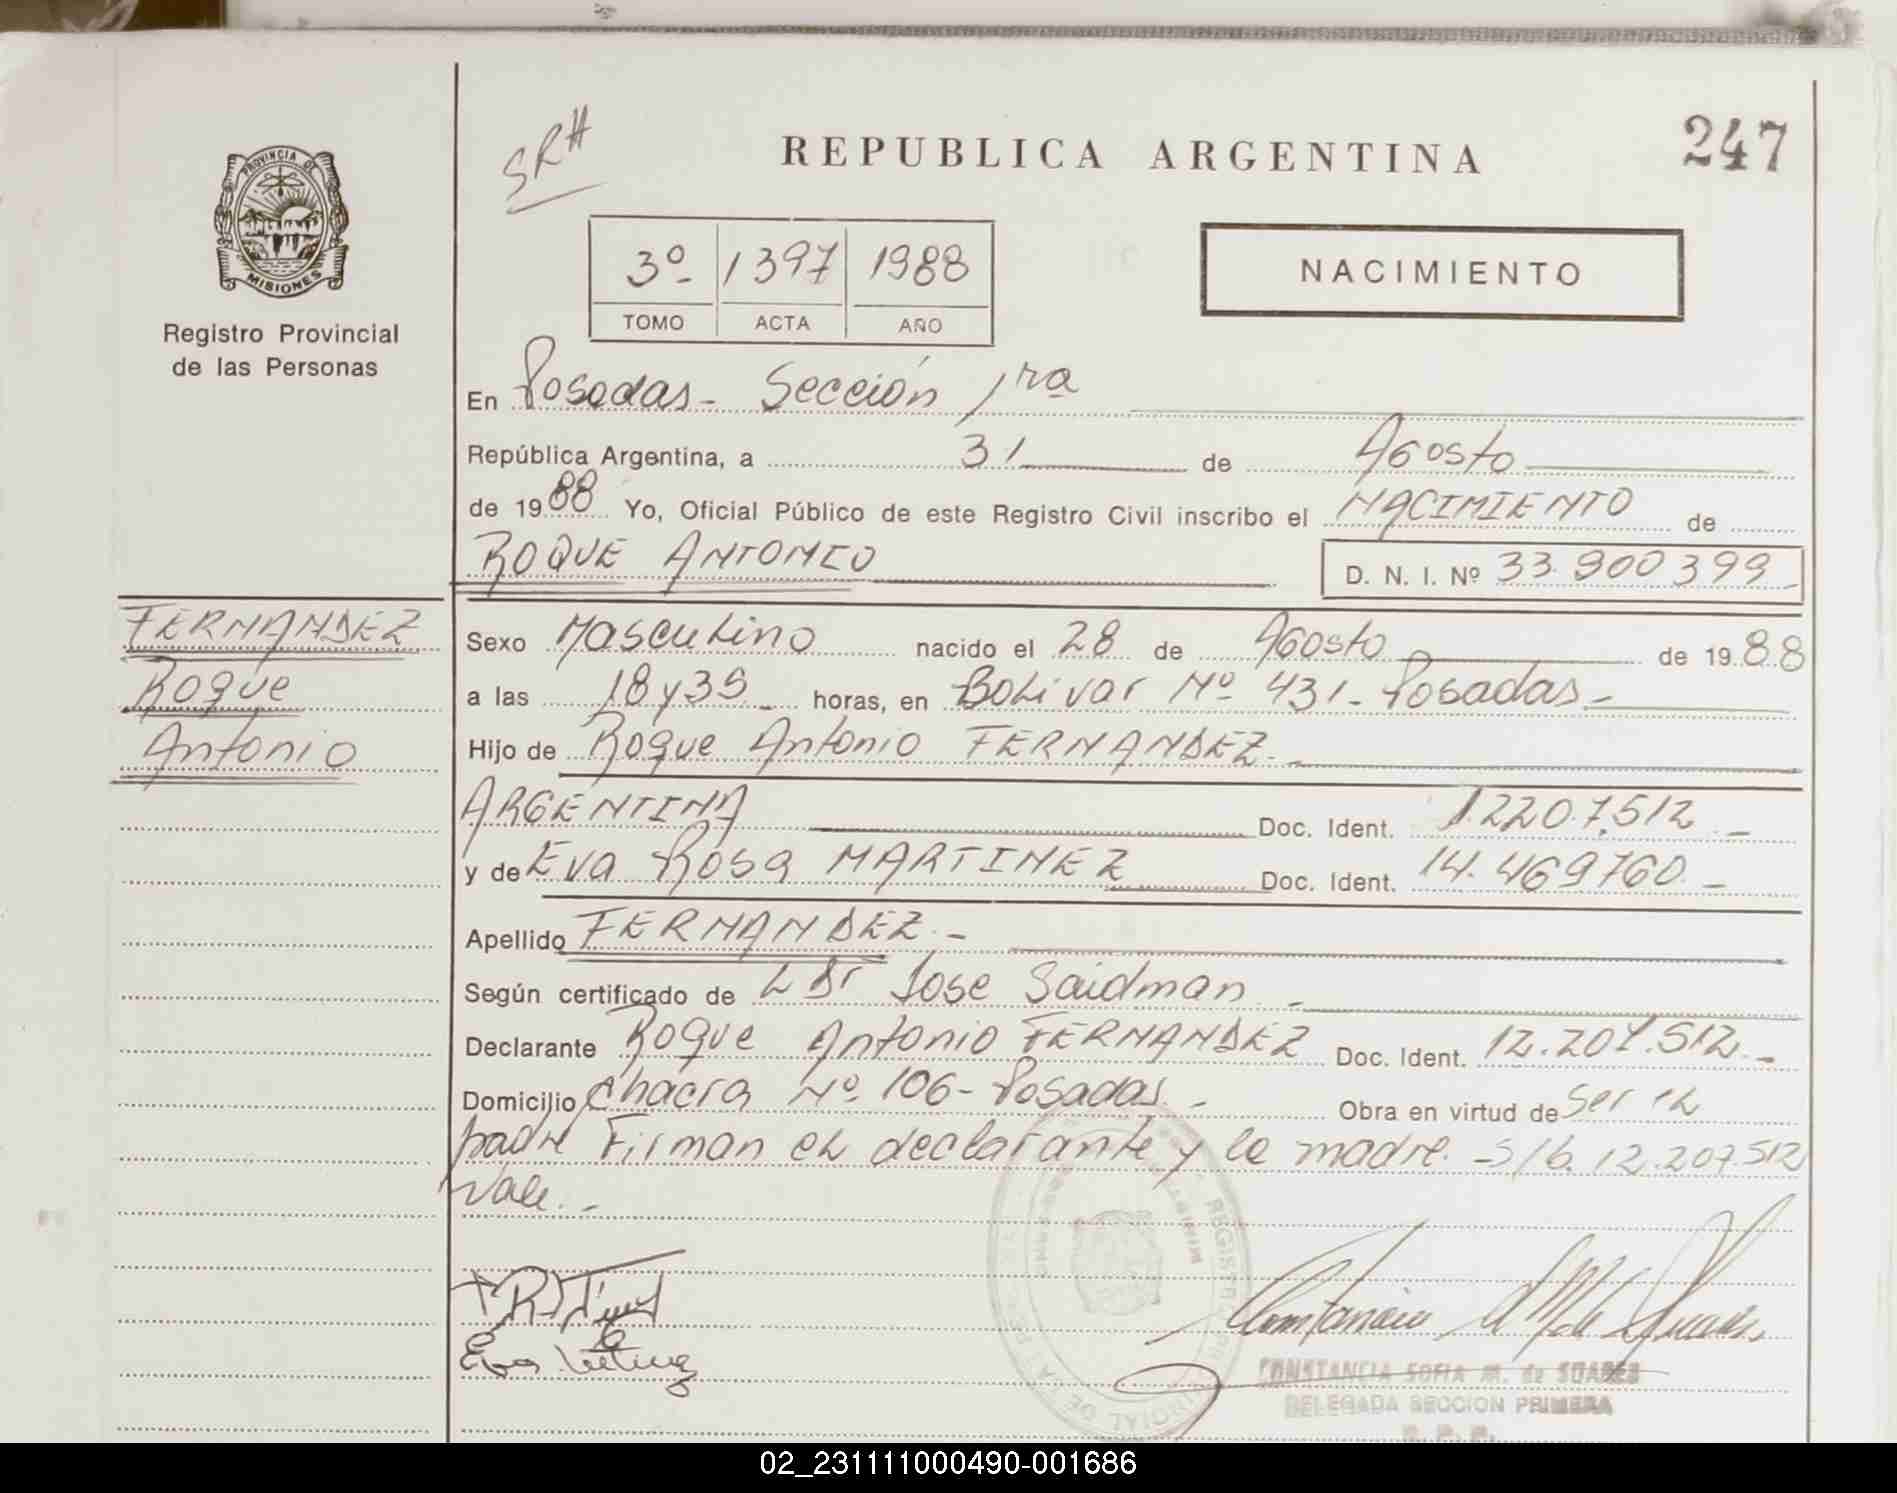 247
SRH
REPUBLICA ARGENTINA
PROVINCIA DE
MISIONES
Registro Provincial
de las Personas
3º 1397 1988
TOMO ACTA AÑO
NACIMIENTO
En Posadas - Sección 1ra
República Argentina, a 31 de Agosto
de 1988 Yo, Oficial Público de este Registro Civil inscribo el NACIMIENTO de
ROQUE ANTONIO D. N. I. Nº 33.900399
FERNANDEZ
Roque
Antonio
Sexo Masculino nacido el 28 de Agosto de 1988
a las 18 y 35 horas, en Bolivar Nº 431 - Posadas -
Hijo de Roque Antonio FERNANDEZ -
ARGENTINA Doc. Ident. 12207.512 -
y de Eva Rosa MARTINEZ Doc. Ident. 14.469760 -
Apellido FERNANDEZ -
Según certificado de L Dr Jose Saidman -
Declarante Roque Antonio FERNANDEZ Doc. Ident. 12.207.512 -
Domicilio Chacra Nº 106 - Posadas - Obra en virtud de ser el
padre Firman el declarante y la madre - S/b. 12.207.512
Vale. -
CONSTANCIA SOFIA M. de SUAREZ
DELEGADA SECCION PRIMERA
R. P. P.
02_231111000490-001686